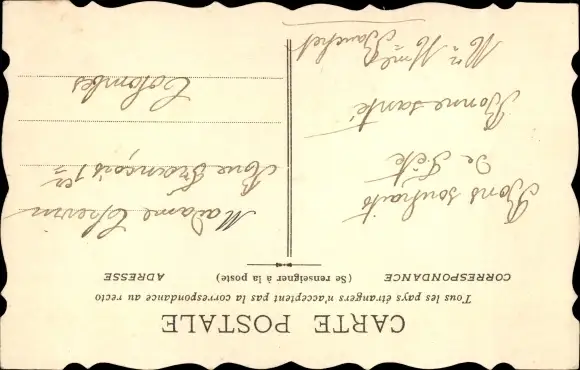 CARTE POSTALE
Tous les pays étrangers n'acceptent pas la correspondance au recto
CORRESPONDANCE
(Se renseigner à la poste)
ADRESSE
Bons souhaits
De Fête
Bonne santé
Mr Mme
Bauchet
Madame
Rue François 1er
Colombes